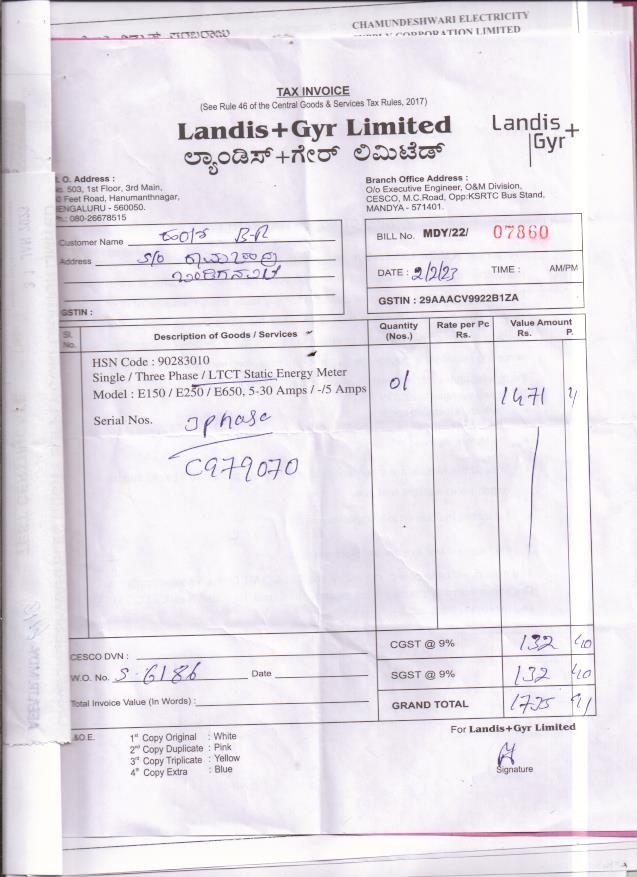 CHAMUNDESHWARI ELECTRICITY
CORPORATION LIMITED
TAX INVOICE
(See Rule 46 of the Central Goods & Services Tax Rules, 2017)
Landis+Gyr Limited
ಲ್ಯಾಂಡಿಸ್+ಗೇರ್ ಲಿಮಿಟೆಡ್
Landis+
Gyr
O. Address :
No. 503, 1st Floor, 3rd Main,
Feet Road, Hanumanthnagar,
BENGALURU - 560050.
Ph.: 080-26678515
Branch Office Address :
O/o Executive Engineer, O&M Division,
CESCO, M.C.Road, Opp:KSRTC Bus Stand,
MANDYA - 571401.
Customer Name B.R
Address S/o
GSTIN :
BILL No. MDY/22/ 07860
DATE : 2/2/23 TIME : AM/PM
GSTIN : 29AAACV9922B1ZA
Sl. No. Description of Goods / Services Quantity (Nos.) Rate per Pc Rs. Value Amount Rs. P.
HSN Code : 90283010
Single / Three Phase / LTCT Static Energy Meter
Model : E150 / E250 / E650, 5-30 Amps / -/5 Amps 01 1471
Serial Nos. 3phase
C979070
CGST @ 9% 132 40
CESCO DVN :
W.O. No. S-6186 Date SGST @ 9% 132 40
Total Invoice Value (In Words) : GRAND TOTAL 1735
&O.E.
1st Copy Original : White
2nd Copy Duplicate : Pink
3rd Copy Triplicate : Yellow
4th Copy Extra : Blue
For Landis+Gyr Limited
Signature